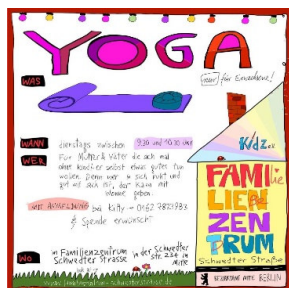 YOGA
WAS
nur für Erwachsene!
WANN
dienstags zwischen 9.30 und 10.30 Uhr
WER
Für Mütter & Väter die sich mal
ohne Kinder selbst etwas gutes tun
wollen. Denn wer in sich ruht und
gut auf sich, der kann mit
geben.
MIT ANMELDUNG bei Kitty
Spende erwünscht
WO
in Familienzentrum
Schwedter Strasse
in der Schwedter
Str. 234 in
Mitte
Kidz e.V.
FAMILIE
LIEN
ZEN
TRUM
Schwedter Straße
BERLIN